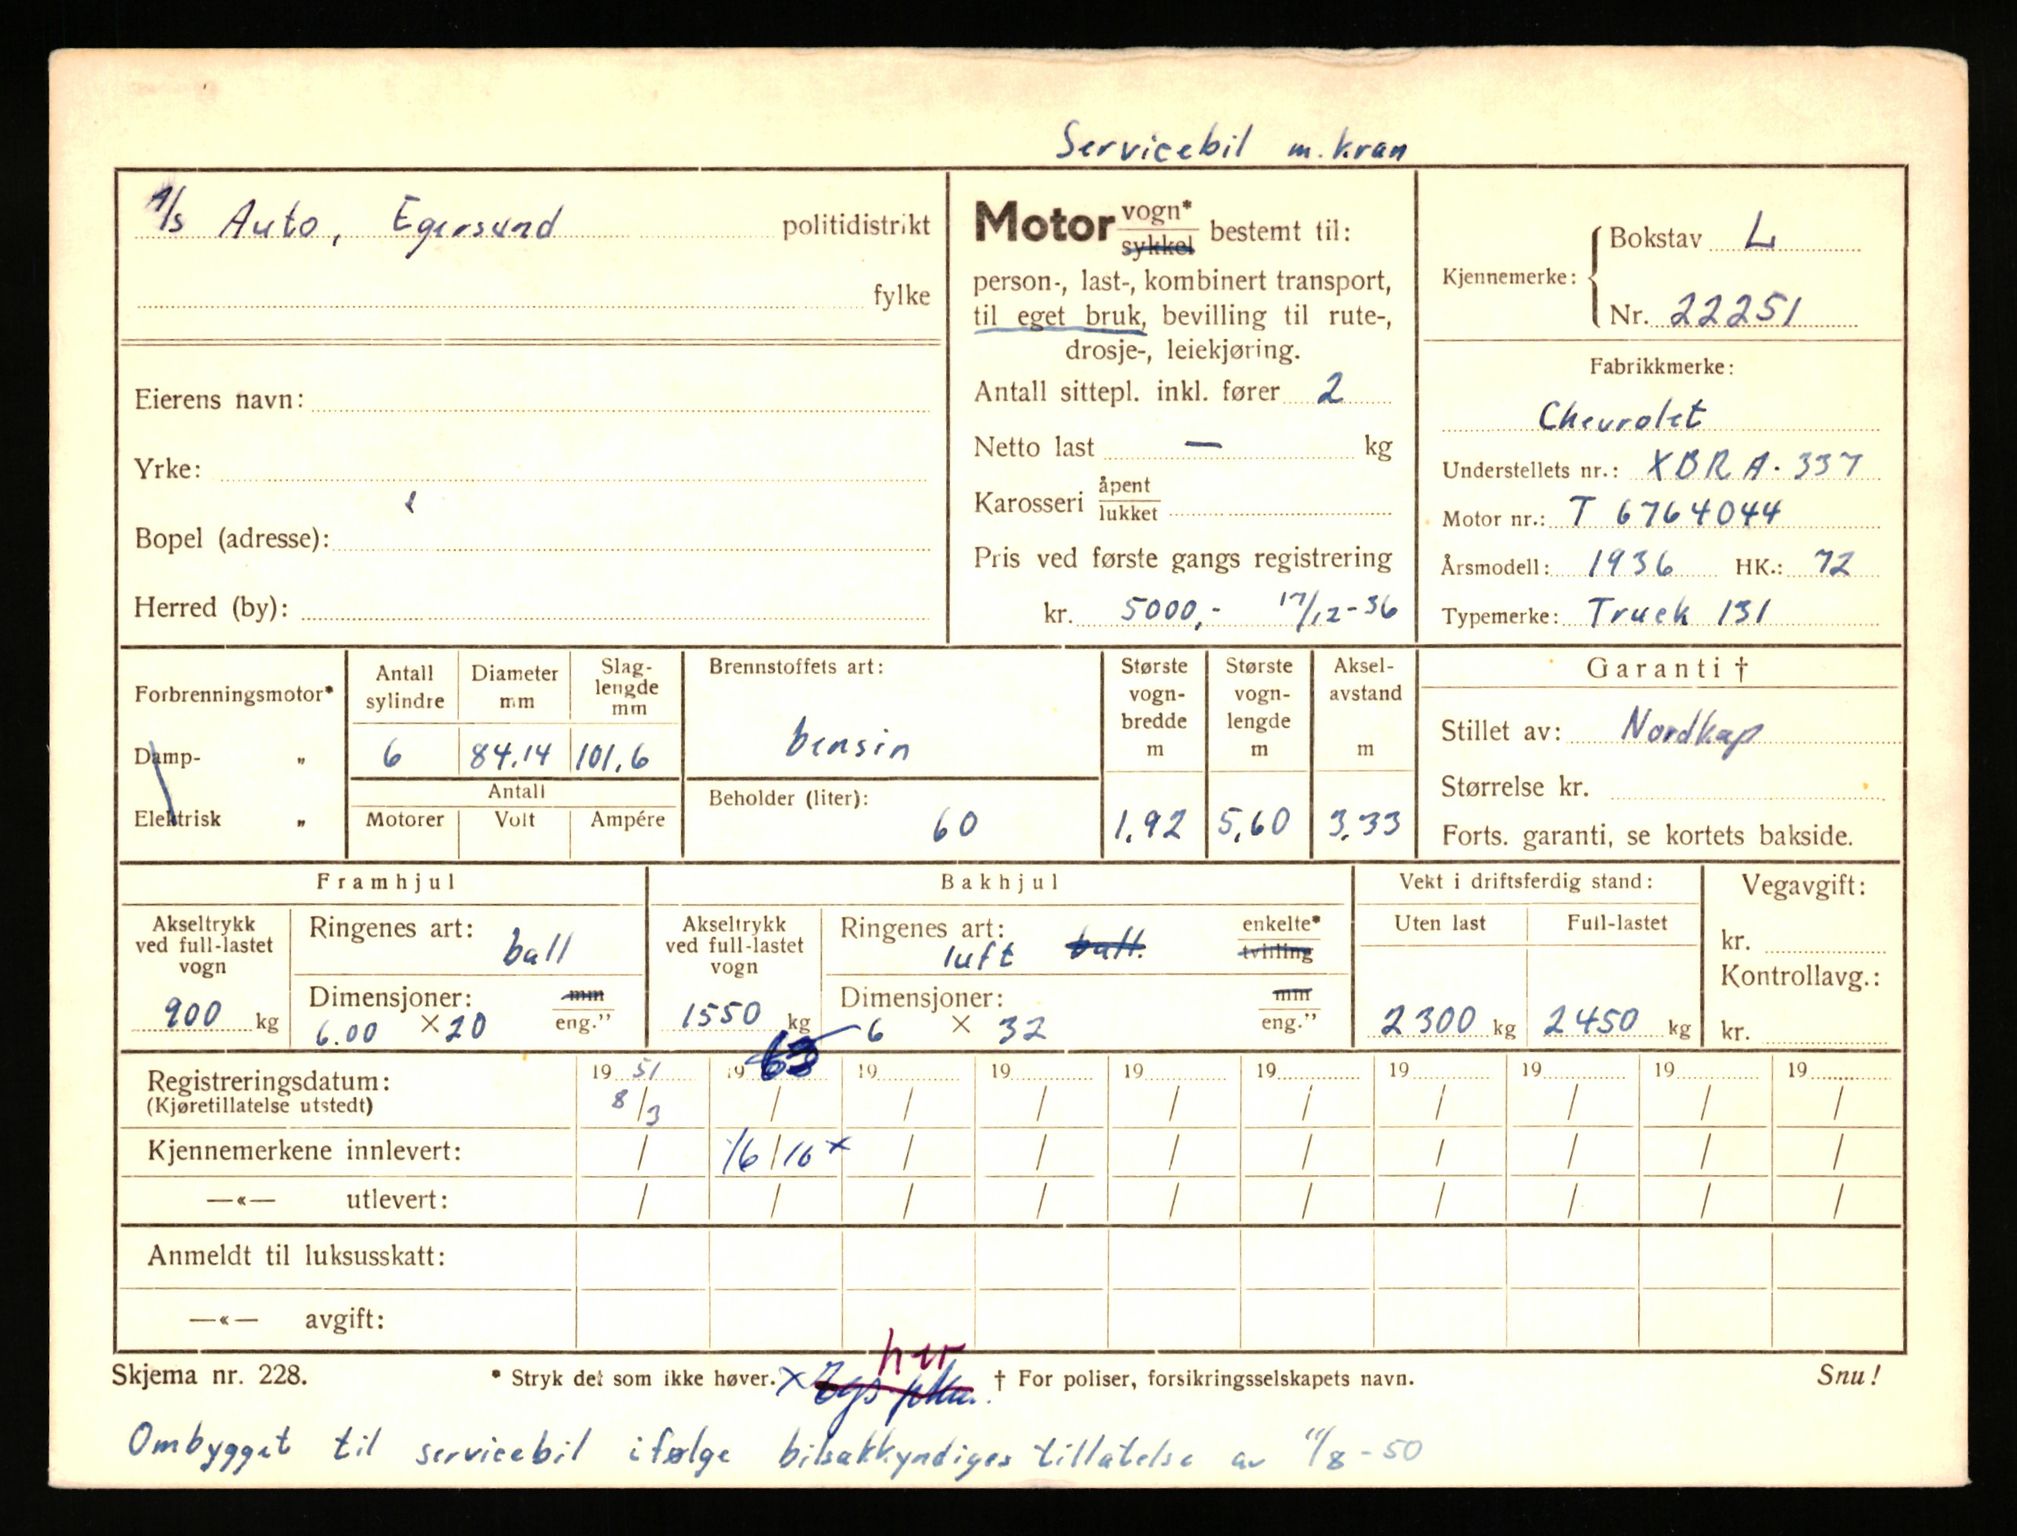 Servicebil m. kran
A/s Auto, Egersund politidistrikt
fylke
Eierens navn:
Yrke:
Bopel (adresse):
Herred (by):
Motor vogn* sykkel bestemt til:
person-, last-, kombinert transport,
til eget bruk, bevilling til rute-,
drosje-, leiekjøring.
Antall sittepl. inkl. fører 2
Netto last — kg
Karosseri åpent lukket
Pris ved første gangs registrering
kr. 5000,- 17/12-36
Kjennemerke: Bokstav L
Nr. 22251
Fabrikkmerke:
Chevrolet
Understellets nr.: XBRA. 337
Motor nr.: T 6764044
Årsmodell: 1936 HK.: 72
Typemerke: Truck 131
Forbrenningsmotor*
Damp- "
Elektrisk "
Antall sylindre
Diameter mm
Slaglengde mm
6 84.14 101.6
Antall
Motorer Volt Ampére
Brennstoffets art:
bensin
Beholder (liter):
60
Største vognbredde m
1.92
Største vognlengde m
5.60
Akselavstand m
3.33
Garanti †
Stillet av: Nordkap
Størrelse kr.
Forts. garanti, se kortets bakside.
Framhjul
Akseltrykk ved full-lastet vogn
900 kg
Ringenes art:
ball
Dimensjoner: mm eng."
6.00 × 20
Bakhjul
Akseltrykk ved full-lastet vogn
1550 kg
Ringenes art: enkelte* tvilling
luft ball.
Dimensjoner: mm eng."
6 × 32
Vekt i driftsferdig stand:
Uten last Full-lastet
2300 kg 2450 kg
Vegavgift:
kr.
Kontrollavg.:
kr.
Registreringsdatum: 19 51 19 63 19 19 19 19 19 19 19 19
(Kjøretillatelse utstedt) 8/3 / / / / / / / / /
Kjennemerkene innlevert: / 16/10 × / / / / / / / /
—«— utlevert: / / / / / / / / / /
Anmeldt til luksusskatt:
—«— avgift:
her
Skjema nr. 228. * Stryk det som ikke høver. × † For poliser, forsikringsselskapets navn. Snu!
Ombygget til servicebil ifølge bilsakkyndiges tillatelse av 11/8-50